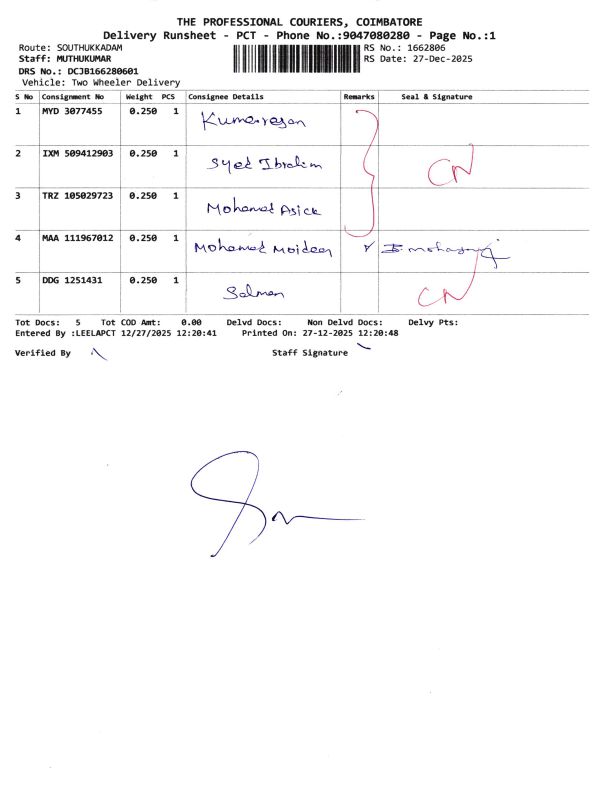 THE PROFESSIONAL COURIERS, COIMBATORE
Delivery Runsheet - PCT - Phone No.:9047080280 - Page No.:1
Route: SOUTHUKKADAM RS No.: 1662806
Staff: MUTHUKUMAR RS Date: 27-Dec-2025
DRS No.: DCJB166280601
Vehicle: Two Wheeler Delivery
S No Consignment No Weight PCS Consignee Details Remarks Seal & Signature
1 MYD 3077455 0.250 1 Kumaresan
2 IXM 509412903 0.250 1 Syed Ibrahim CN
3 TRZ 105029723 0.250 1 Mohamed Asick
4 MAA 111967012 0.250 1 Mohamed Moideen
5 DDG 1251431 0.250 1 Salman CN
Tot Docs: 5 Tot COD Amt: 0.00 Delvd Docs: Non Delvd Docs: Delvy Pts:
Entered By :LEELAPCT 12/27/2025 12:20:41 Printed On: 27-12-2025 12:20:48
Verified By Staff Signature